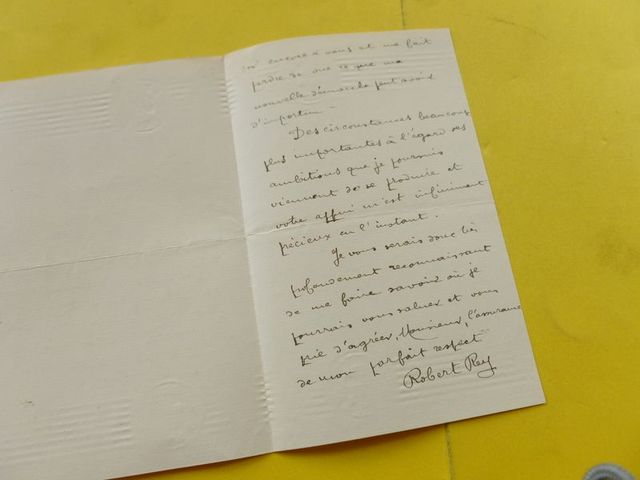 encore à vous et me fait
perdre de vue ce que ma
nouvelle démarche peut avoir
d'importun —
Des circonstances beaucoup
plus importantes à l'égard des
ambitions que je poursuis
viennent de se produire et
votre appui m'est infiniment
précieux en l'instant.
Je vous serais donc très
profondément reconnaissant
de me faire savoir où je
pourrais vous saluer et vous
prie d'agréer, Monsieur, l'assurance
de mon parfait respect
Robert Rey